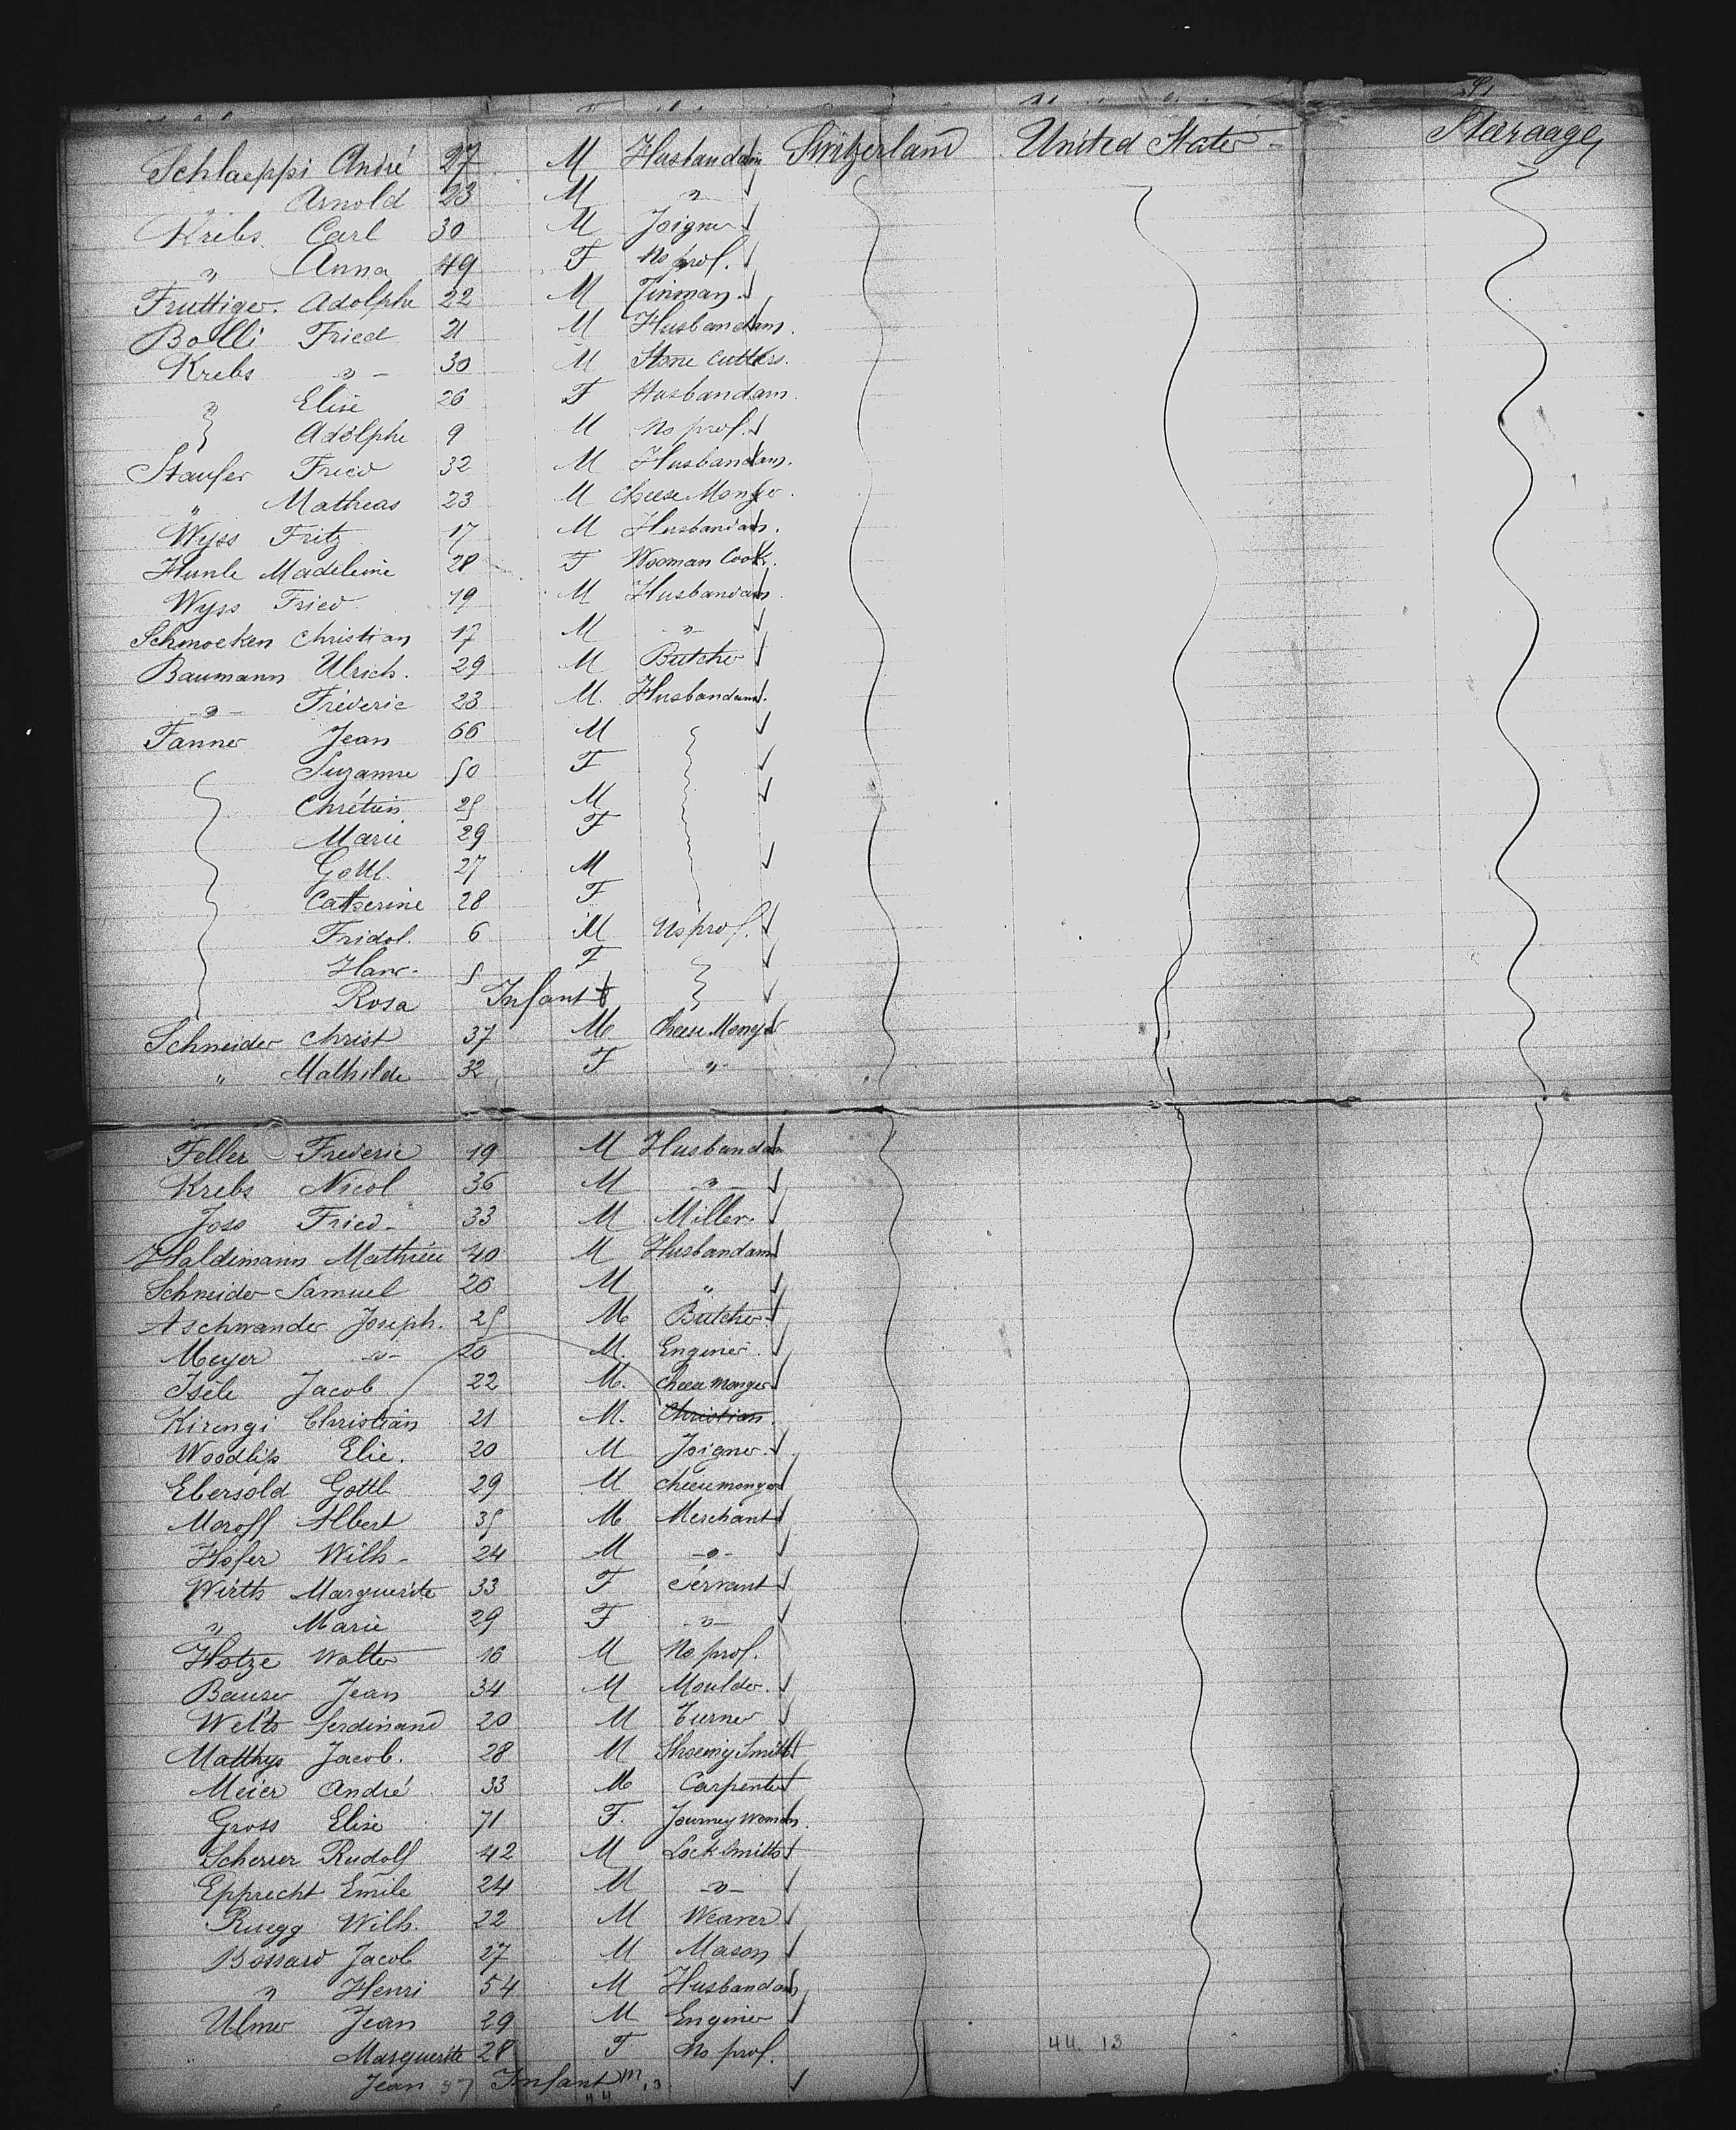 Schlaeppi André 27 M Husbandam Switzerland United States Steeraage
" Arnold 23 M "
Krebs Carl 30 M Joigner
" Anna 49 F No prof.
Fruttiger Adolphe 22 M Tinman
Bolli Fried 21 M Husbandam
Krebs " 30 M Stone cutters
Elise 26 F Husbandam
Adolphe 9 M No prof.
Staufer Fried 32 M Husbandam
" Mathias 23 M Cheese Monger
Wyss Fritz 17 M Husbandam
Hunle Madeleine 28 F Wooman Cook
Wyss Fried 19 M Husbandam
Schmocken Christian 17 M "
Baumann Ulrich. 29 M Butcher
" Fréderic 23 M. Husbandam
Tanner Jean 66 M
Suzanne 50 F
Chrétien 25 M
Marie 29 F
Gottl. 27 M
Catherine 28 F
Fridol. 6 M No prof.
5 F
Rosa Infant
Schneider Christ 37 M Cheese Monger
" Mathilde 32 F "
Feller Frederic 19 M Husbandam
Krebs Nicol 36 M "
Joss Fried 33 M Miller
Haldimann Mathieu 40 M Husbandam
Schneider Samuel 26 M "
Aschwander Joseph. 25 M Butcher
Meyer " 20 M. Enginer
Isele Jacob 22 M. Cheese monger
Kirengi Christian 21 M. Christian
Woodlis Elie. 20 M Joigner
Ebersold Gottl 29 M cheesemonger
Moroff Albert 35 M Merchant
Hofer Wilh 24 M "
Wirth Marguerite 33 F Servant
" Marie 29 F "
Hotze Walter 16 M No prof.
Bauser Jean 34 M Moulder
Welts ferdinand 20 M Turner
Matthys Jacob. 28 M Shoeing Smith
Meier André 33 M Carpenter
Gross Elise 71 F. Journey woman
Scherrer Rudolf 42 M Lock Smith
Epprecht Emile 24 M "
Ruegg Wilh. 22 M Weaver
Bossard Jacob 27 M Mason
" Henri 54 M Husbandam
Ulmer Jean 29 M Enginer
Marguerite 28 F No prof. 44 13
Jean Infant m